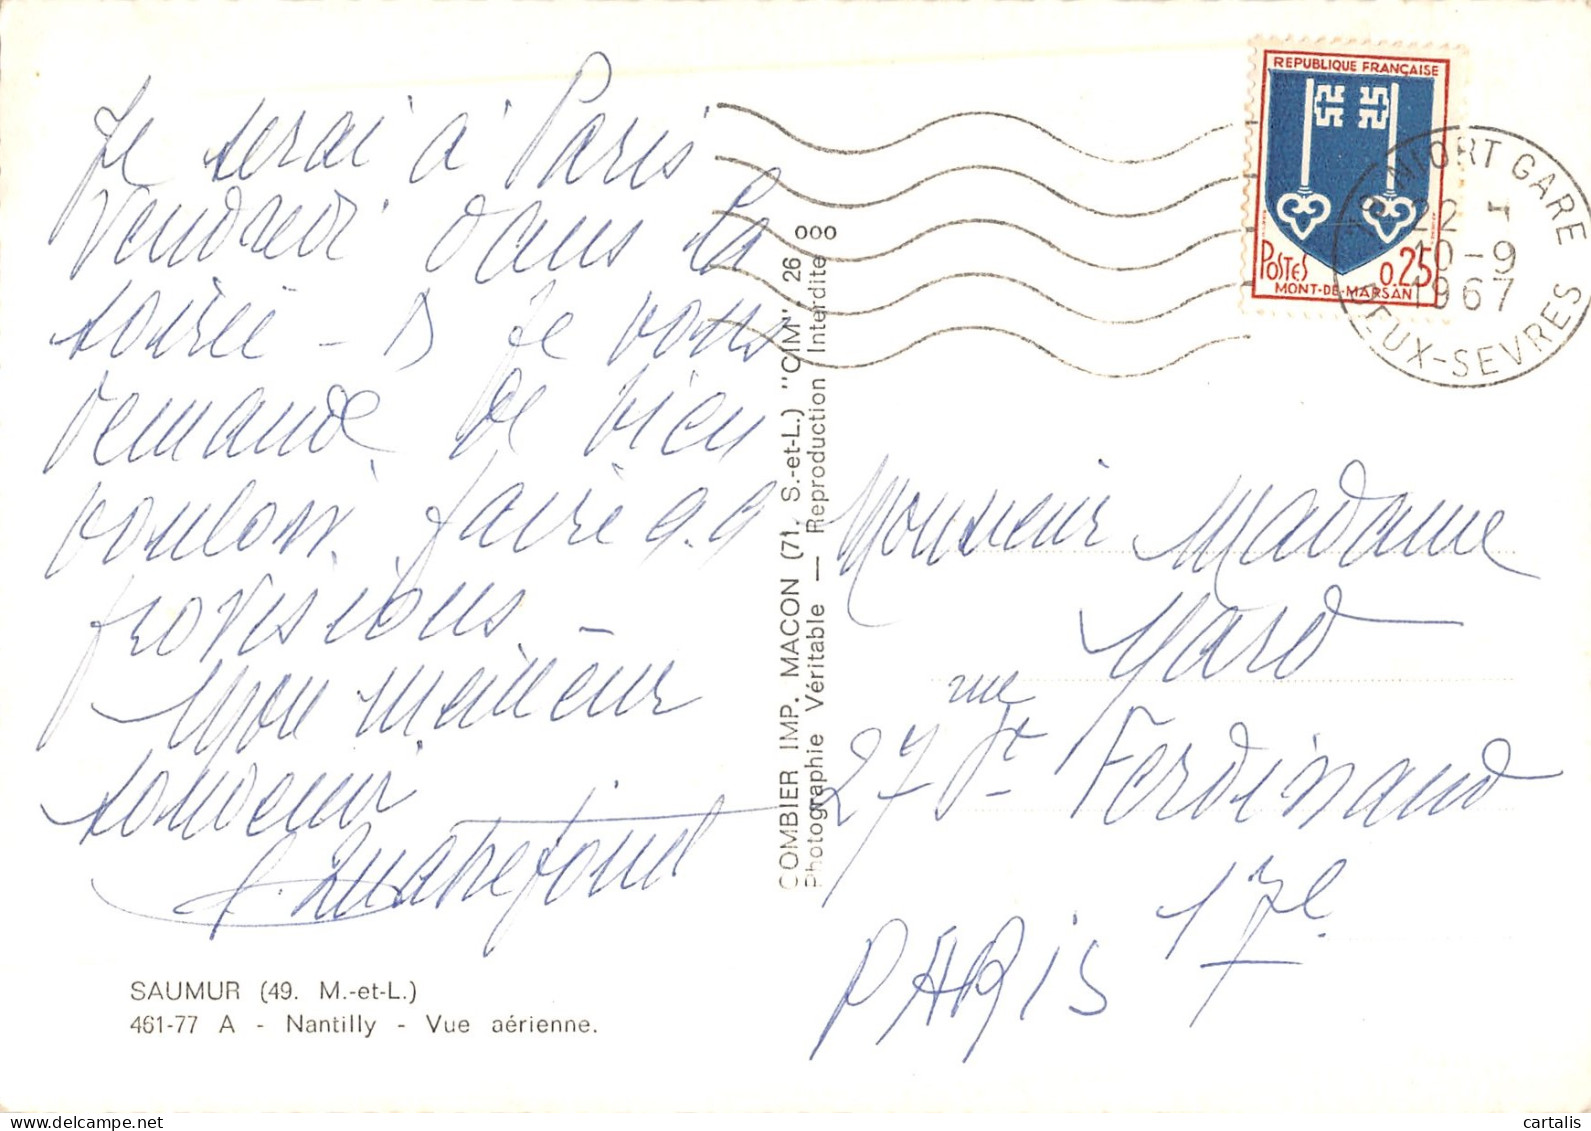 Je serai à Paris
vendredi dans la
soirée - Je vous
demande de bien
vouloir faire q.q
provisions -
Mon meilleur
souvenir
SAUMUR (49. M.-et-L.)
461-77 A - Nantilly - Vue aérienne.
COMBIER IMP. MACON (71. S.-et-L.) "CIM" 26
Photographie Véritable — Reproduction Interdite
REPUBLIQUE FRANÇAISE
POSTES 0.25
MONT-DE-MARSAN
NIORT GARE
22 H
10-9
1967
DEUX-SEVRES
Monsieur Madame
rue
27 St Ferdinand
17e
PARIS
cartalis